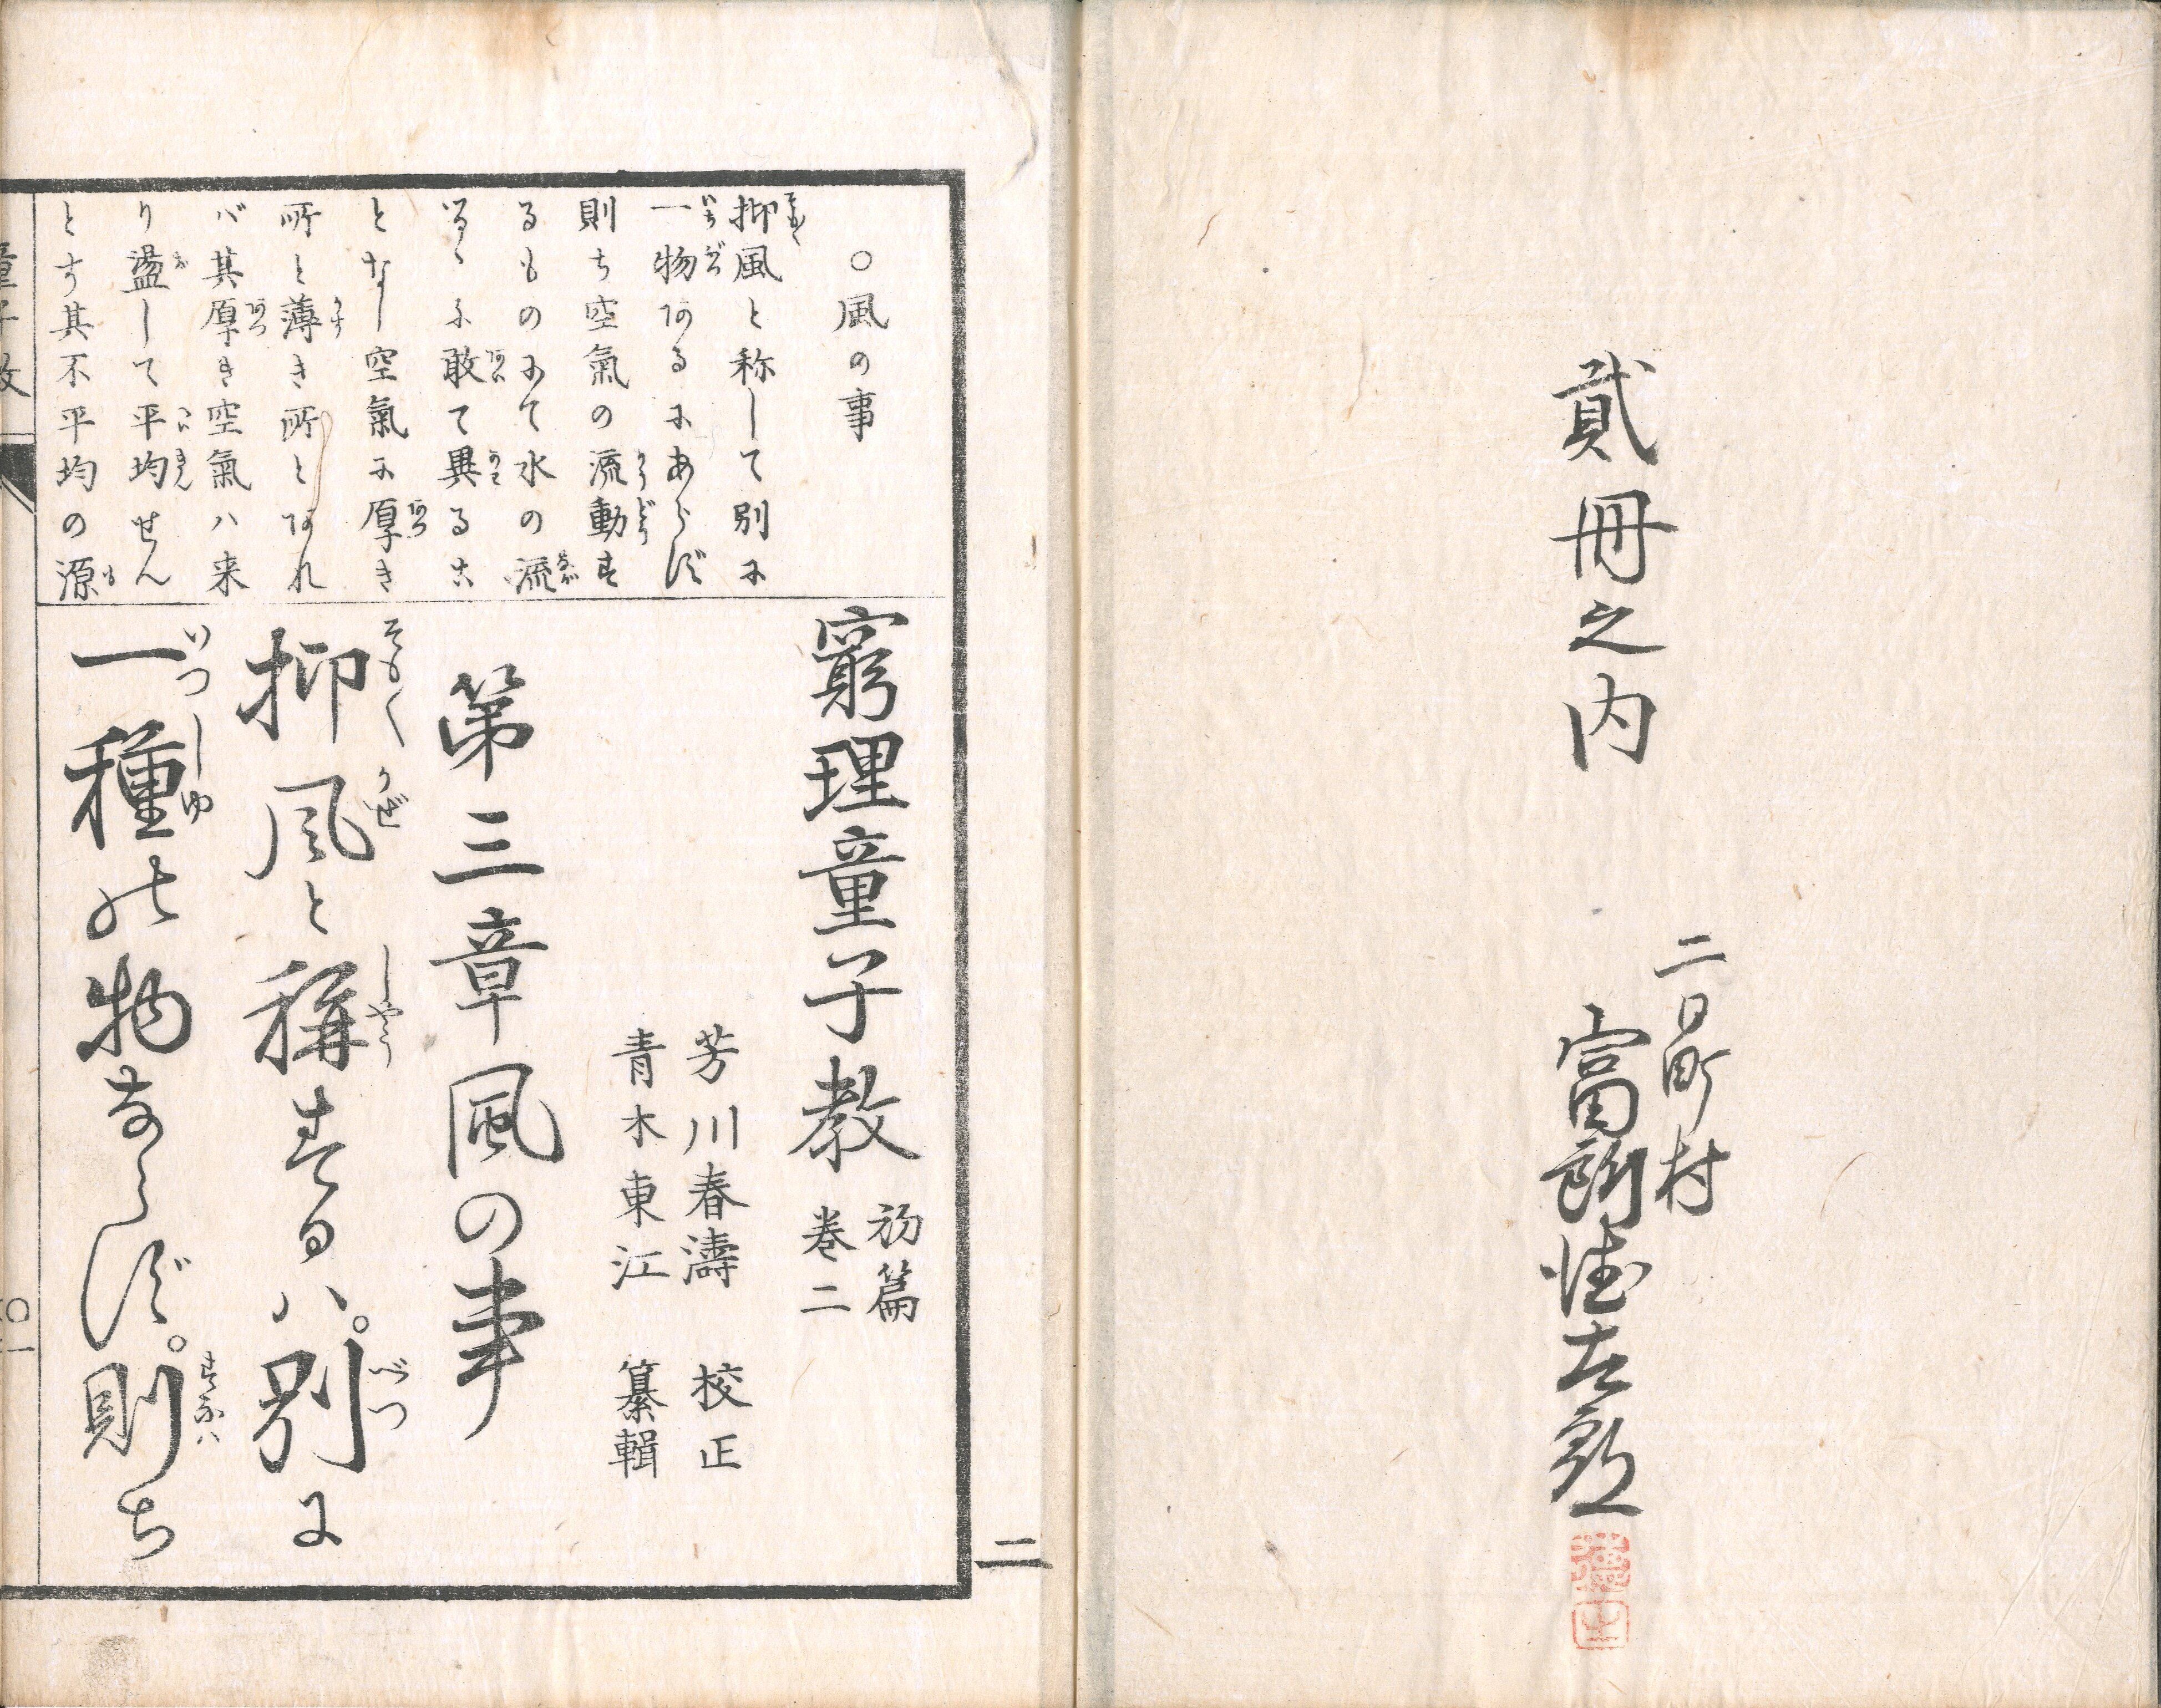 貳冊之内
二日町村
富所徳太郎
二
○風の事
抑風と称して別に
一物あるにあらず
則ち空氣の流動す
るものにて水の流
るゝに敢て異るこ
となし空氣に厚き
所と薄き所とあれ
バ其厚き空氣ハ来
り盪して平均せん
とす其不平均の源
窮理童子教 初篇 巻二
芳川春濤 校正
青木東江 纂輯
第三章風の事
抑風と稱するハ。別に
一種の物ならず。則ち